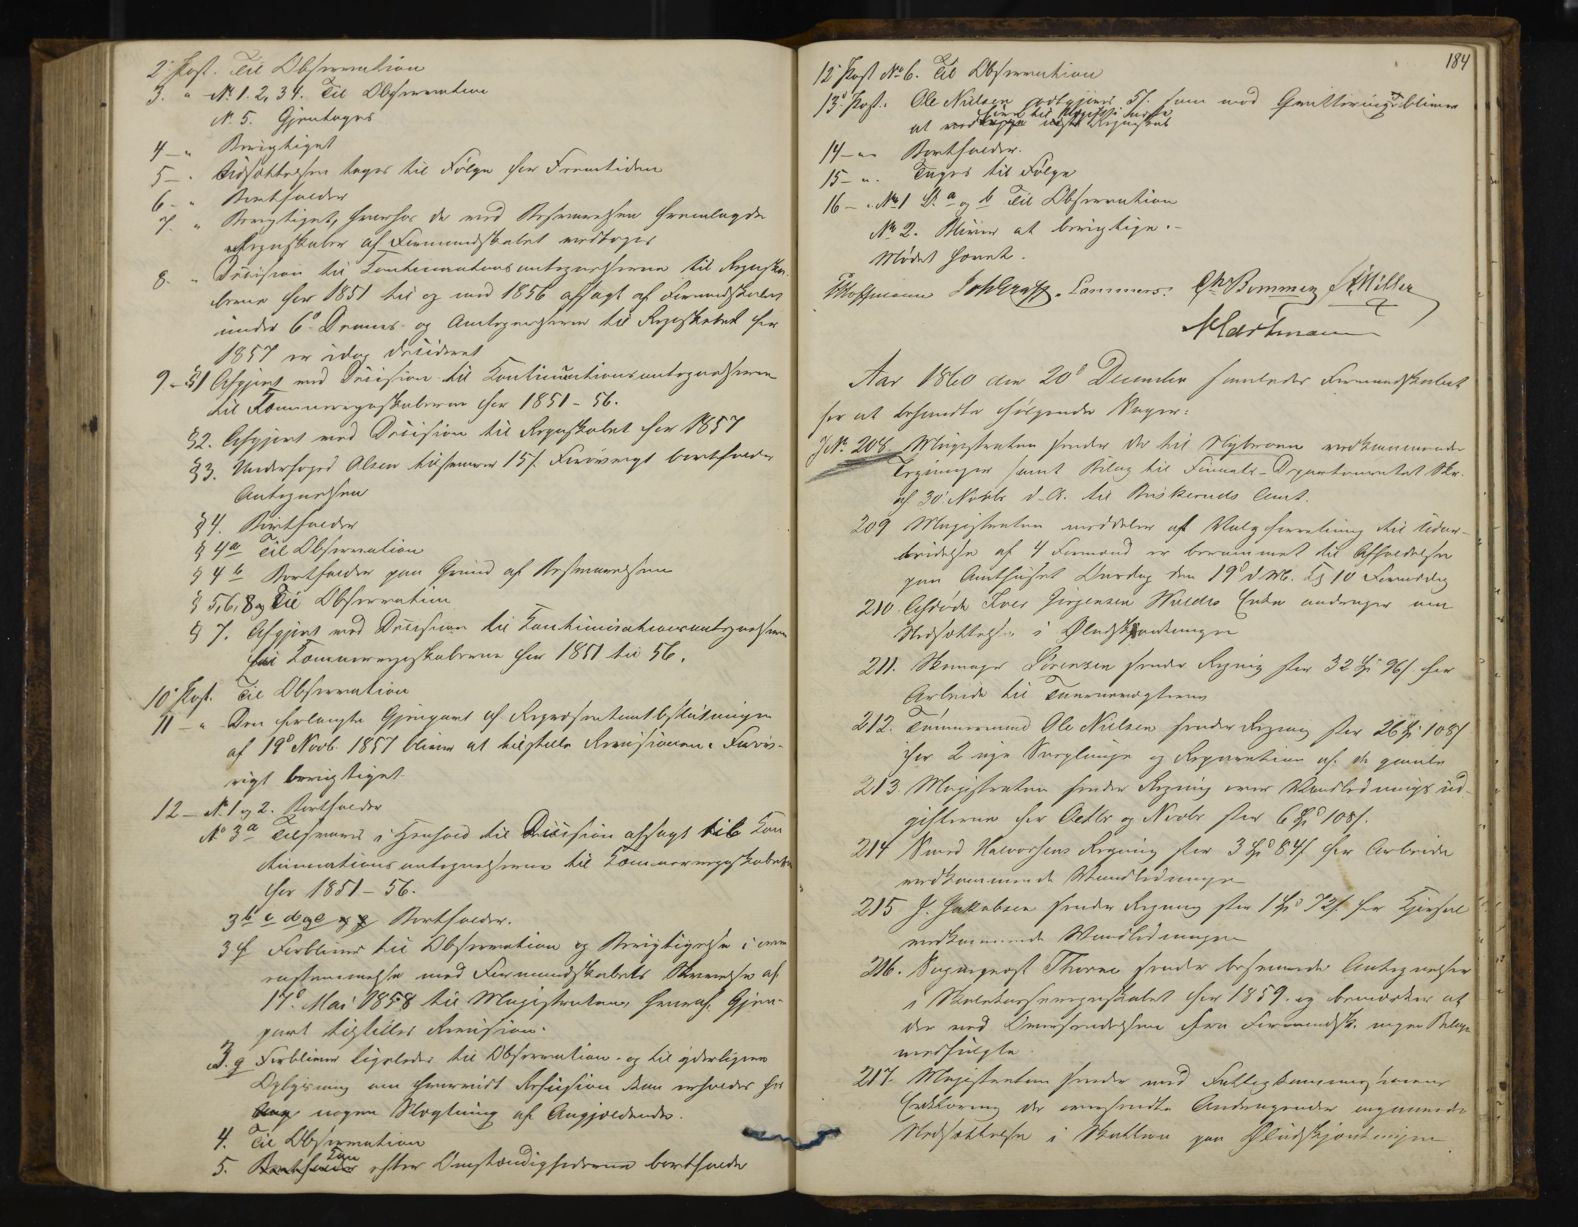 2' Post. Til Observation
3. " No 1. 2, 3 4. Til Observation
No. 5. Gjentages
4 — " Berigtiget
5 — . Udsættelsen tages til Følge for Fremtiden
6 — " Bortfalder
7. " Berigtiget, hvorhos de med Besvarelsen fremlagde
Regnskaber af Formandskabet vedtoges
8. " Decision til Continuationsantegnelserne til Regnska-
berne for 1851 til og med 1856 afsagt af Formandskabet
under 6te og Antegnelserne til Regnskabet for
1857 er idag decideret
9 - §1 Afgjort ved Decision til Continuationsantegnelserne
til Kæmnerregnskaberne for 1851 - 56.
§2. Afgjort ved Decision til Regnskabet for 1857
§3. Olsen tilsvarer 15 s. Forøvrigt bortfalder
Antegnelsen
§ 4. Bortfalder
§ 4a Til Observation
§ 4b Bortfalder paa Grund af Besvarelsen
§ 5, 6, 8 og Til Observation
§ 7. Afgjort ved Decision til Continuationsantegnelserne
til Kæmnerregnskaberne for 1851 til 56.
10' Post. Til Observation
11 — " Den forlangte Gjenpart af Repræsentantbeslutningen
af 19de Novb. 1857 bliver at tilstille Revisionen. Forøv-
rigt berigtiget.
12 — No. 1 og 2. Bortfalder
No 3a Tilsvares i Henhold til Decision afsagt til Con
tinuationsantegnelserne til Kæmnerregnskaberne
for 1851 - 56.
3b c d og e Bortfalder.
3 f Forbliver til Observation og Berigtigelse i over
ensstemmelse med Formandskabets Skrivelse af
17de Mai 1858 til Magistraten, hvoraf Gjen-
part tilstilles Revision.
3. g Forbliver ligeledes til Observation og til yderligere
Oplysning om hvorvidt Refusion kan erholdes hos
nogen Slægtning af Angjældende.
4. Til Observation
5. Kan efter Omstændighederne bortfalde
184
12' Post No 6. Til Observation
13' Post. Ole Nielsen godtgjøres 5 s. som mod Qvittering bliver
at
14 — " Bortfalder.
15 — ". Tages til Følge
16 — . No 1 L. a og b Til Observation
No 2. Bliver at berigtige. -
Mødet hævet.
Hoffmann Lammers. Bommen Miller
Hartmann
Aar 1860 den 20de December samledes Formandskabet
for at behandle følgende Sager:
J No 208. Magistraten sender de til vedkommende
Tegninger samt Bilag til Finants-Departementet Skr.
af 30' Novbr. d. A. til Buskeruds Amt.
209 Magistraten meddeler at Valgforretning til Udar-
beidelse af 4 Formænd er berammet til Afholdelse
paa Raadhuset Onsdag den 19de d. M. Kl 10 Formiddag
210. Afdøde Iver Jørgensen Enke andrager om
Nedsættelse i Øludskjænkningen
211. Skomager Sørensen sender Regning stor 32 s 96 s. for
Arbeide til
212. Tømmermand Ole Nielsen sender Regning stor 26 Spd 108 s
for 2 nye og Reparation af de gamle
213. Magistraten sender Regning over Vandledningsud-
gifterne for Octbr og Novbr stor 6 Spd 108 s.
214 Smed Halvorsens Regning stor 3 Spd 84 s for Arbeide
vedkommende Vandledningen
215 J. Jakobsen sender Regning stor 1 Spd 72 s. for Kjørsel
vedkommende Vandledningen
216. Sogneprest Thorne sender besvarede Antegnelser
i Skolekasseregnskabet for 1859. og bemærker at
der ved Oversendelsen fra Formandsk. ingen Bilage
medfulgte.
217. Magistraten sender med Fattigkommissionens
Erklæring de oversendte Andragender angaaende
Nedsættelse i Skatten paa Øludskjænkningen